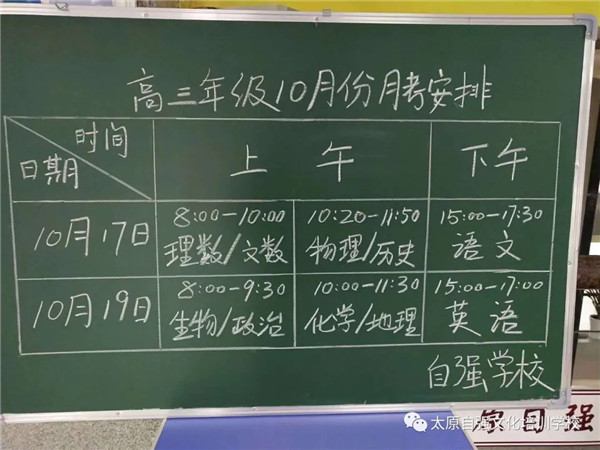 高三年级10月份月考安排
时间
日期
上午
下午
10月17日
8:00-10:00
理数/文数
10:20-11:50
物理/历史
15:00-17:30
语文
10月19日
8:00-9:30
生物/政治
10:00-11:30
化学/地理
15:00-17:00
英语
自强学校
太原自强文化培训学校
自强